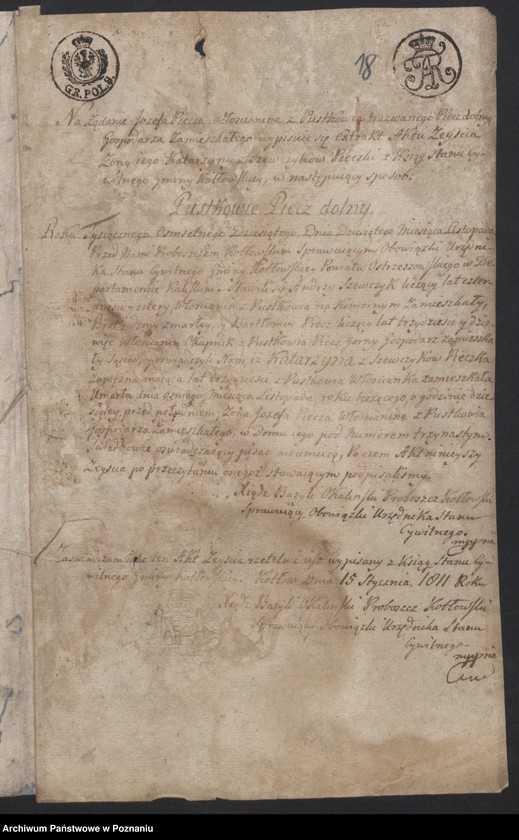 GR. POL. 5.
18
Na Żądanie Józefa Piecza Włościanina z Pustkowia nazwanego Piecz dolny
Gospodarza Zamieszkałego wypisuie się extrakt Aktu Zeyścia
Żony iego Katarzyny z Szewczyków Pieczki z Księg Stanu Cy-
wilnego Gminy Kotłowskiey, w następuiący sposób.
Pustkowie Piecz dolny.
Roku Tysięcznego Osmsetnego Dziesiątego Dnia Dziesiątego Miesiąca Listopada
Przed Nami Proboszczem Kotłowskim Sprawuiącym Obowiązki Urzędni-
ka Stanu Cywilnego Gminy Kotłowskiey Powiatu Ostrzeszowskiego w De-
partamencie Kaliskim. Stawili się Andrzy Szewczyk liczący lat czter-
dzieści y cztery Włościanin z Pustkowia na komornym Zamieszkały,
Brat rodzony zmarłey, y Bartłomiey Piecz liczący lat trzydzieści y dzie-
więć włościanin Okupnik z Pustkowia Piecz Gorny Gospodarz zamieszka-
ły Sąsiad, y oświadczyli Nam iż Katarzyna z Szewczyków Pieczka
Zamężna maiąca lat trzydzieści z Pustkowia Włościanka zamieszkała
Umarła dnia osmego miesiąca Listopada roku bieżącego, o godzinie dzie-
siątey przed południem, Żona Józefa Piecza Włościanina z Pustkowia
Gospodarza Zamieszkałego, w Domu iego pod Numerem trzynastym.
Świadkowie oświadczaiący pisać nieumieią, Poczem Akt ninieyszy
Zeyścia po przeczytaniu onegoż stawaiącym podpisaliśmy.
Xiądz Bazyli Okaliński Proboszcz Kotłowski
Sprawuiący Obowiązki Urzędnika Stanu
Cywilnego.
mppria
Zaświadczam iako ten Akt Zeyścia rzetelnie iest wypisany z Księg Stanu Cy-
wilnego Gminy Kotłowskiey. Kotłów Dnia 15 Stycznia 1811 Roku
Xiądz Bazyli Okaliński Proboszcz Kotłowski
Sprawuiący Obowiązki Urzędnika Stanu
Cywilnego.
mppria
Archiwum Państwowe w Poznaniu
szukajwarchiwach.pl